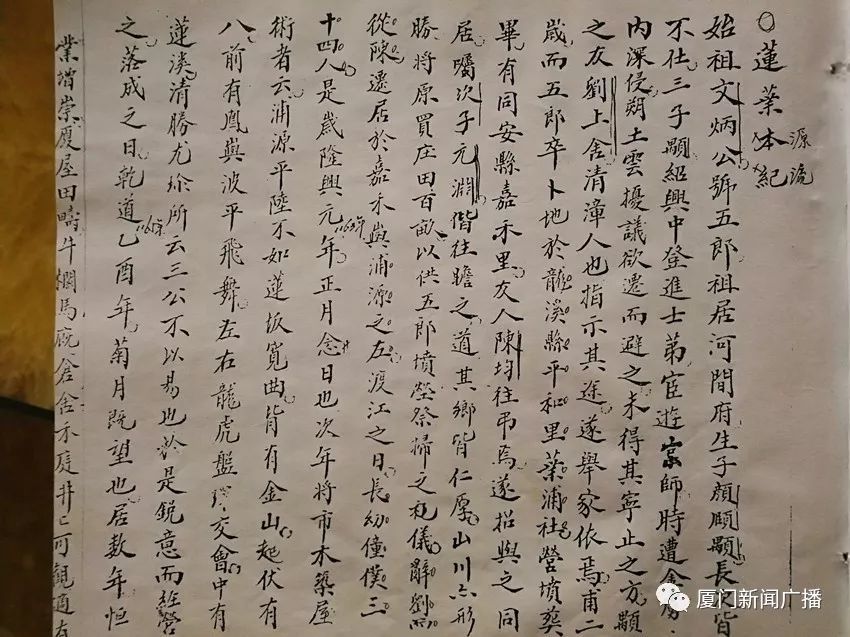 ○蓮葉本紀源流
始祖文炳公號五郎祖居河間府生子顏頤顯長次皆
不仕三子顯紹興中登進士第宦遊京師時遭金虜
內深侵朔土雲擾議欲遷而避之未得其寧止之方顯
之友劉上舍清漳人也指示其途遂舉家依焉甫二
歲而五郎卒卜地於龍溪縣平和里葉浦社營墳葬
畢有同安縣嘉禾里友人陳均往弔焉遂招與之同
居囑次子元淵偕往瞻之道其鄉皆仁厚山川亦形
勝將原買庄田百畝以供五郎墳塋祭掃之礼儀辭劉而
從陳遷居於嘉禾與浦源之左渡江之日長幼僮僕三
十四人是歲隆興元年正月念日也次年將市木築屋
1163年
廿
術者云浦源平陸不如蓮坂寬曲背有金山起伏有
八前有鳳與波平飛舞左右龍虎盤 交會中有
蓮溪清勝尤 所云三公不以易也於是銳意而經營
之落成之日乾道乙酉年菊月既望也居数年恒
1165年
業增崇廈屋田疇牛欄馬廐倉舍禾庭井井可觀適友
厦门新闻广播